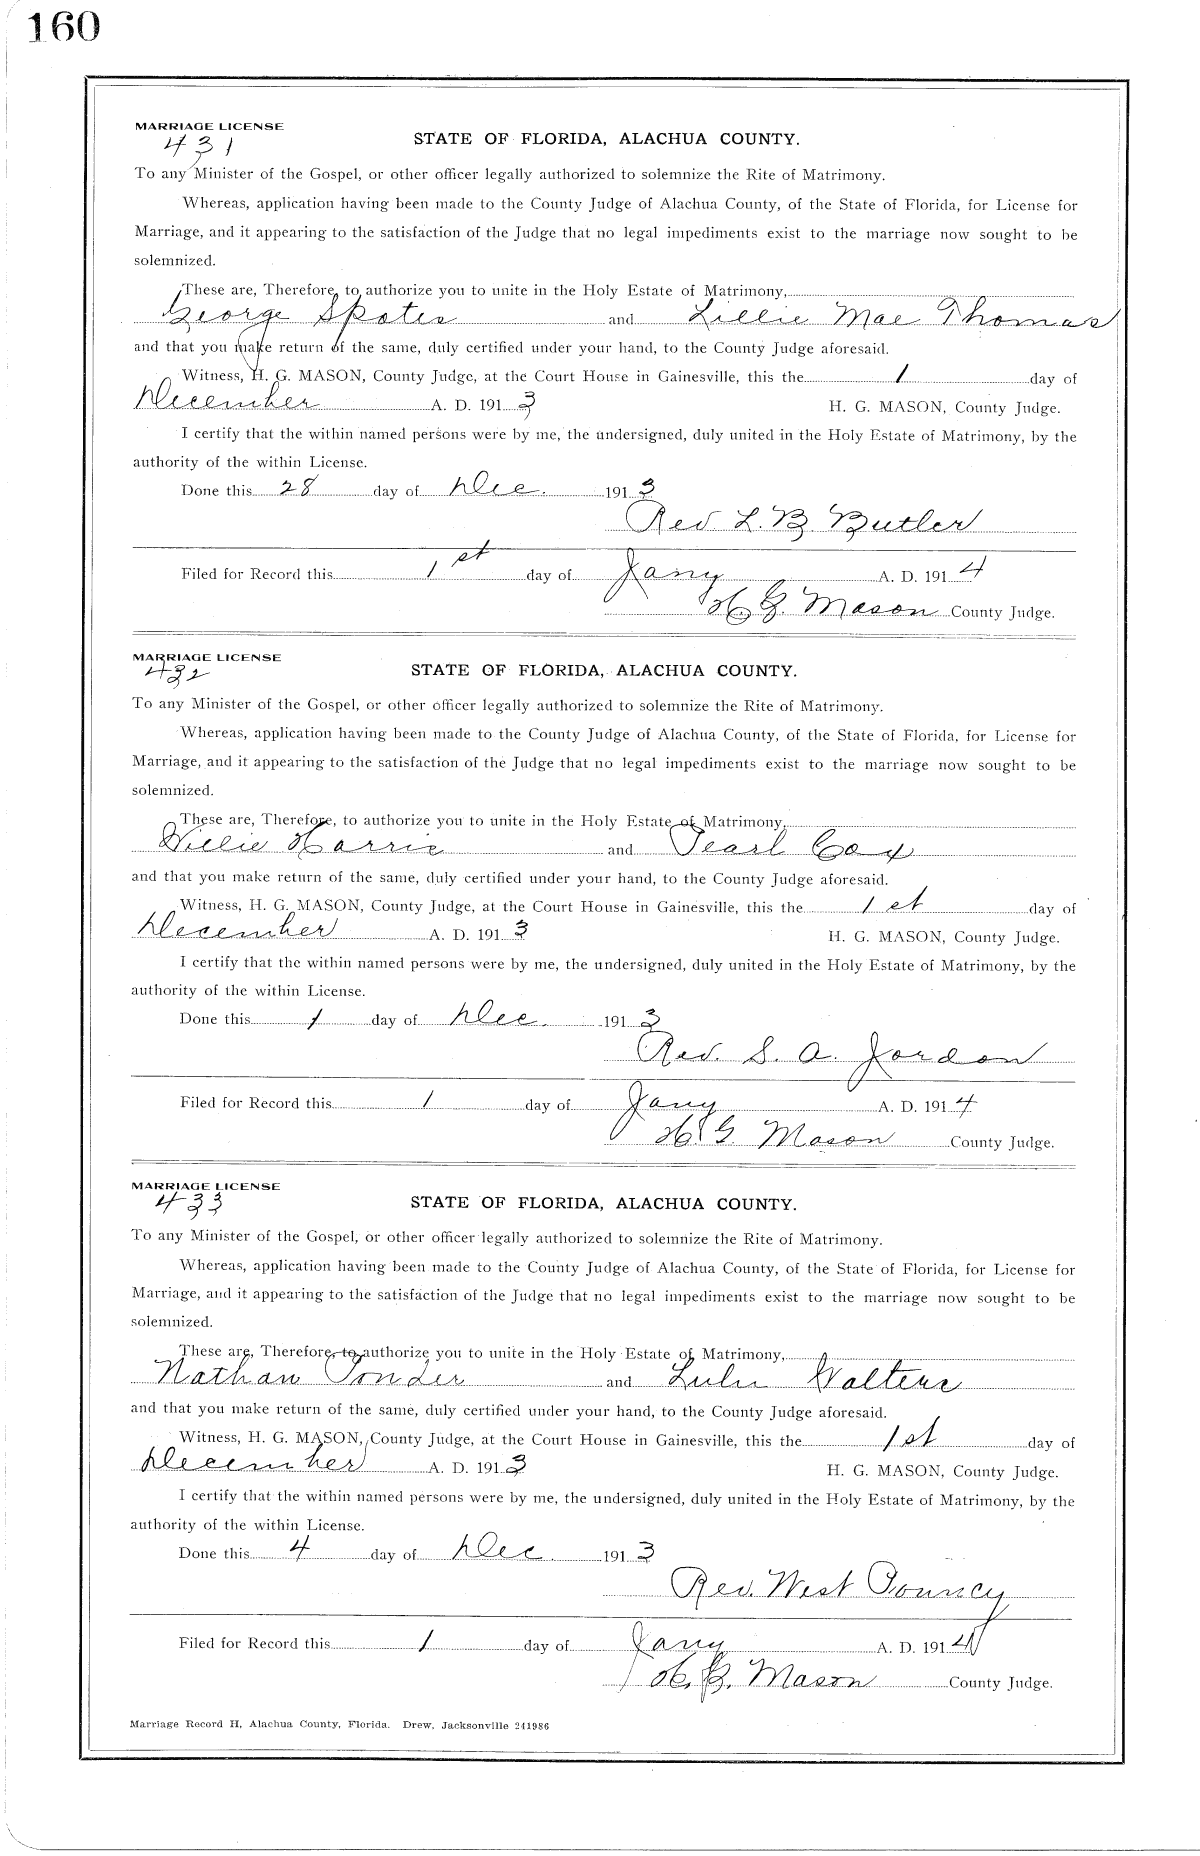 160
MARRIAGE LICENSE
431
STATE OF FLORIDA, ALACHUA COUNTY.
To any Minister of the Gospel, or other officer legally authorized to solemnize the Rite of Matrimony.
Whereas, application having been made to the County Judge of Alachua County, of the State of Florida, for License for
Marriage, and it appearing to the satisfaction of the Judge that no legal impediments exist to the marriage now sought to be
solemnized.
These are, Therefore, to authorize you to unite in the Holy Estate of Matrimony,
George Spates and Lillie Mae Thomas
and that you make return of the same, duly certified under your hand, to the County Judge aforesaid.
Witness, H. G. MASON, County Judge, at the Court House in Gainesville, this the 1 day of
December A. D. 191 3 H. G. MASON, County Judge.
I certify that the within named persons were by me, the undersigned, duly united in the Holy Estate of Matrimony, by the
authority of the within License.
Done this 28 day of Dec. 191 3
Rev L. B. Butler
Filed for Record this 1st day of Jany A. D. 191 4
H. G. Mason County Judge.
MARRIAGE LICENSE
432
STATE OF FLORIDA, ALACHUA COUNTY.
To any Minister of the Gospel, or other officer legally authorized to solemnize the Rite of Matrimony.
Whereas, application having been made to the County Judge of Alachua County, of the State of Florida, for License for
Marriage, and it appearing to the satisfaction of the Judge that no legal impediments exist to the marriage now sought to be
solemnized.
These are, Therefore, to authorize you to unite in the Holy Estate of Matrimony,
Willie Harris and Pearl Cox
and that you make return of the same, duly certified under your hand, to the County Judge aforesaid.
Witness, H. G. MASON, County Judge, at the Court House in Gainesville, this the 1st day of
December A. D. 191 3 H. G. MASON, County Judge.
I certify that the within named persons were by me, the undersigned, duly united in the Holy Estate of Matrimony, by the
authority of the within License.
Done this 1 day of Dec. 191 3
Rev. S. A. Jordon
Filed for Record this 1 day of Jany A. D. 191 4
H. G. Mason County Judge.
MARRIAGE LICENSE
433
STATE OF FLORIDA, ALACHUA COUNTY.
To any Minister of the Gospel, or other officer legally authorized to solemnize the Rite of Matrimony.
Whereas, application having been made to the County Judge of Alachua County, of the State of Florida, for License for
Marriage, and it appearing to the satisfaction of the Judge that no legal impediments exist to the marriage now sought to be
solemnized.
These are, Therefore, to authorize you to unite in the Holy Estate of Matrimony,
Nathan Ponder and Lulu Walters
and that you make return of the same, duly certified under your hand, to the County Judge aforesaid.
Witness, H. G. MASON, County Judge, at the Court House in Gainesville, this the 1st day of
December A. D. 191 3 H. G. MASON, County Judge.
I certify that the within named persons were by me, the undersigned, duly united in the Holy Estate of Matrimony, by the
authority of the within License.
Done this 4 day of Dec 191 3
Rev. West Pouncy
Filed for Record this 1 day of Jany A. D. 191 4
H. G. Mason County Judge.
Marriage Record H, Alachua County, Florida. Drew, Jacksonville 241986